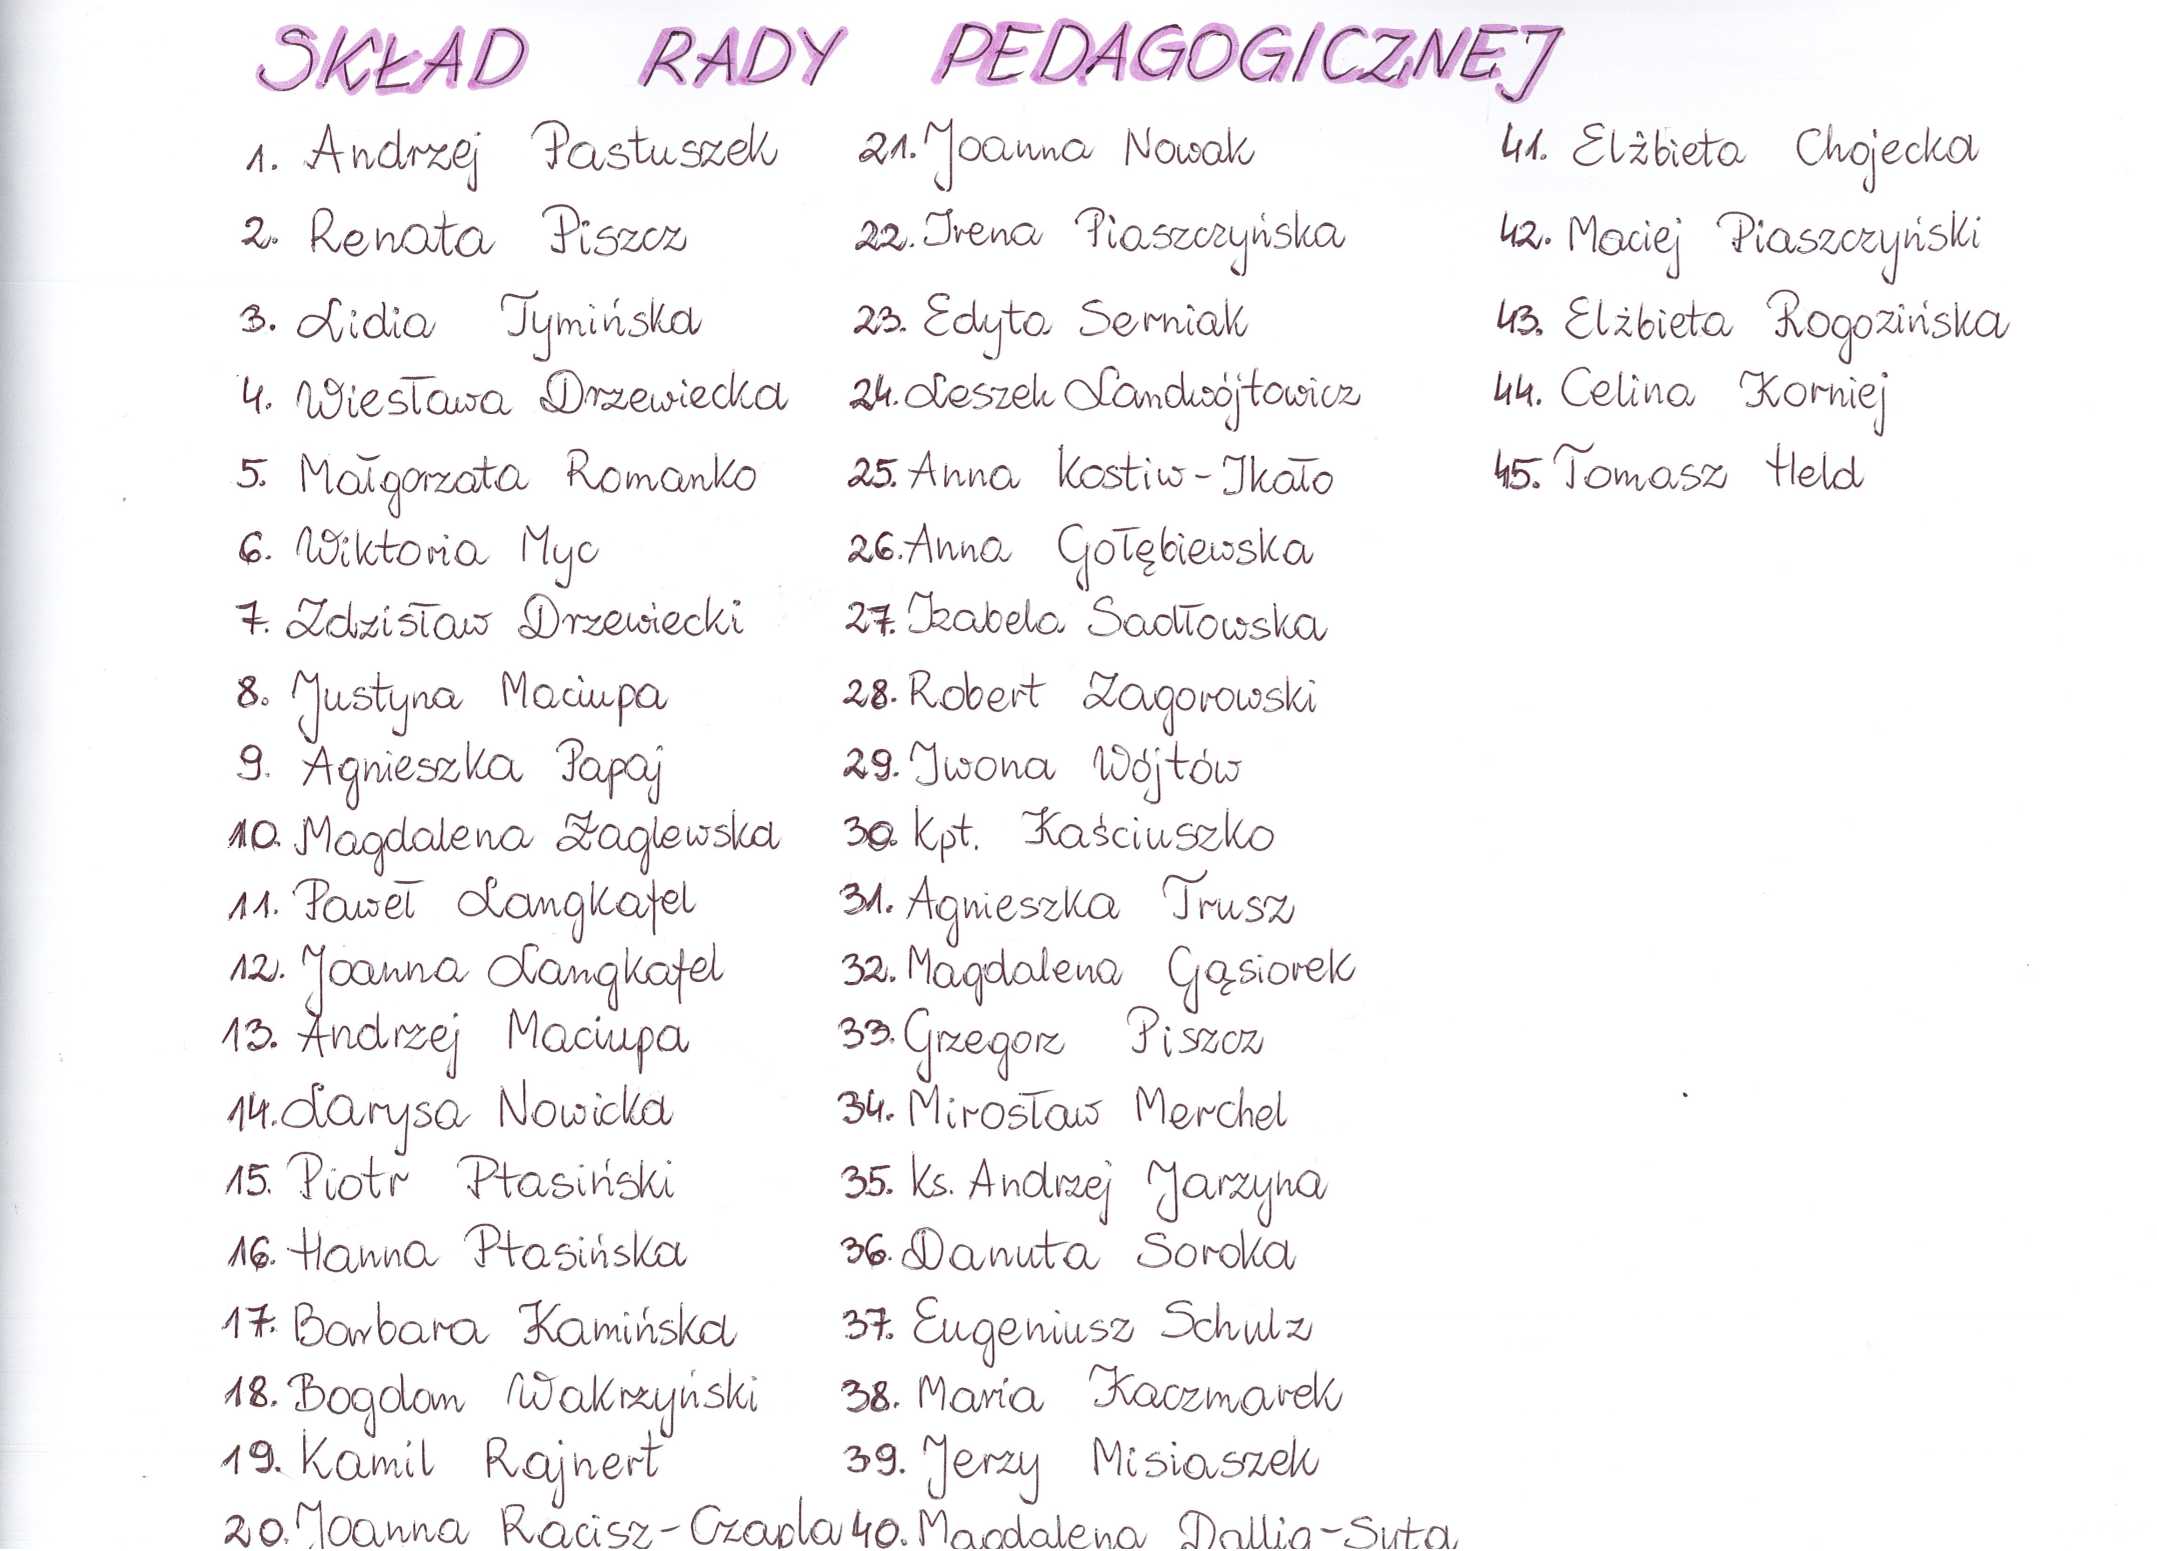 SKŁAD RADY PEDAGOGICZNEJ
1. Andrzej Pastuszek
2. Renata Piszcz
3. Lidia Tymińska
4. Wiesława Drzewiecka
5. Małgorzata Romanko
6. Wiktoria Myc
7. Zdzisław Drzewiecki
8. Justyna Maciupa
9. Agnieszka Papaj
10. Magdalena Żaglewska
11. Paweł Langkafel
12. Joanna Langkafel
13. Andrzej Maciupa
14. Larysa Nowicka
15. Piotr Ptasiński
16. Hanna Ptasińska
17. Barbara Kamińska
18. Bogdan Wakrzyński
19. Kamil Rajnert
20. Joanna Racisz-Czapla
21. Joanna Nowak
22. Irena Piaszczyńska
23. Edyta Serniak
24. Leszek Landwójtowicz
25. Anna Kostiw-Ikało
26. Anna Gołębiewska
27. Izabela Sadłowska
28. Robert Zagorowski
29. Iwona Wójtów
30. Kpt. Kaściuszko
31. Agnieszka Trusz
32. Magdalena Gąsiorek
33. Grzegorz Piszcz
34. Mirosław Merchel
35. Ks. Andrzej Jarzyna
36. Danuta Soroka
37. Eugeniusz Schulz
38. Maria Kaczmarek
39. Jerzy Misiaszek
40. Magdalena Dallig-Suta
41. Elżbieta Chojecka
42. Maciej Piaszczyński
43. Elżbieta Rogozińska
44. Celina Korniej
45. Tomasz Held